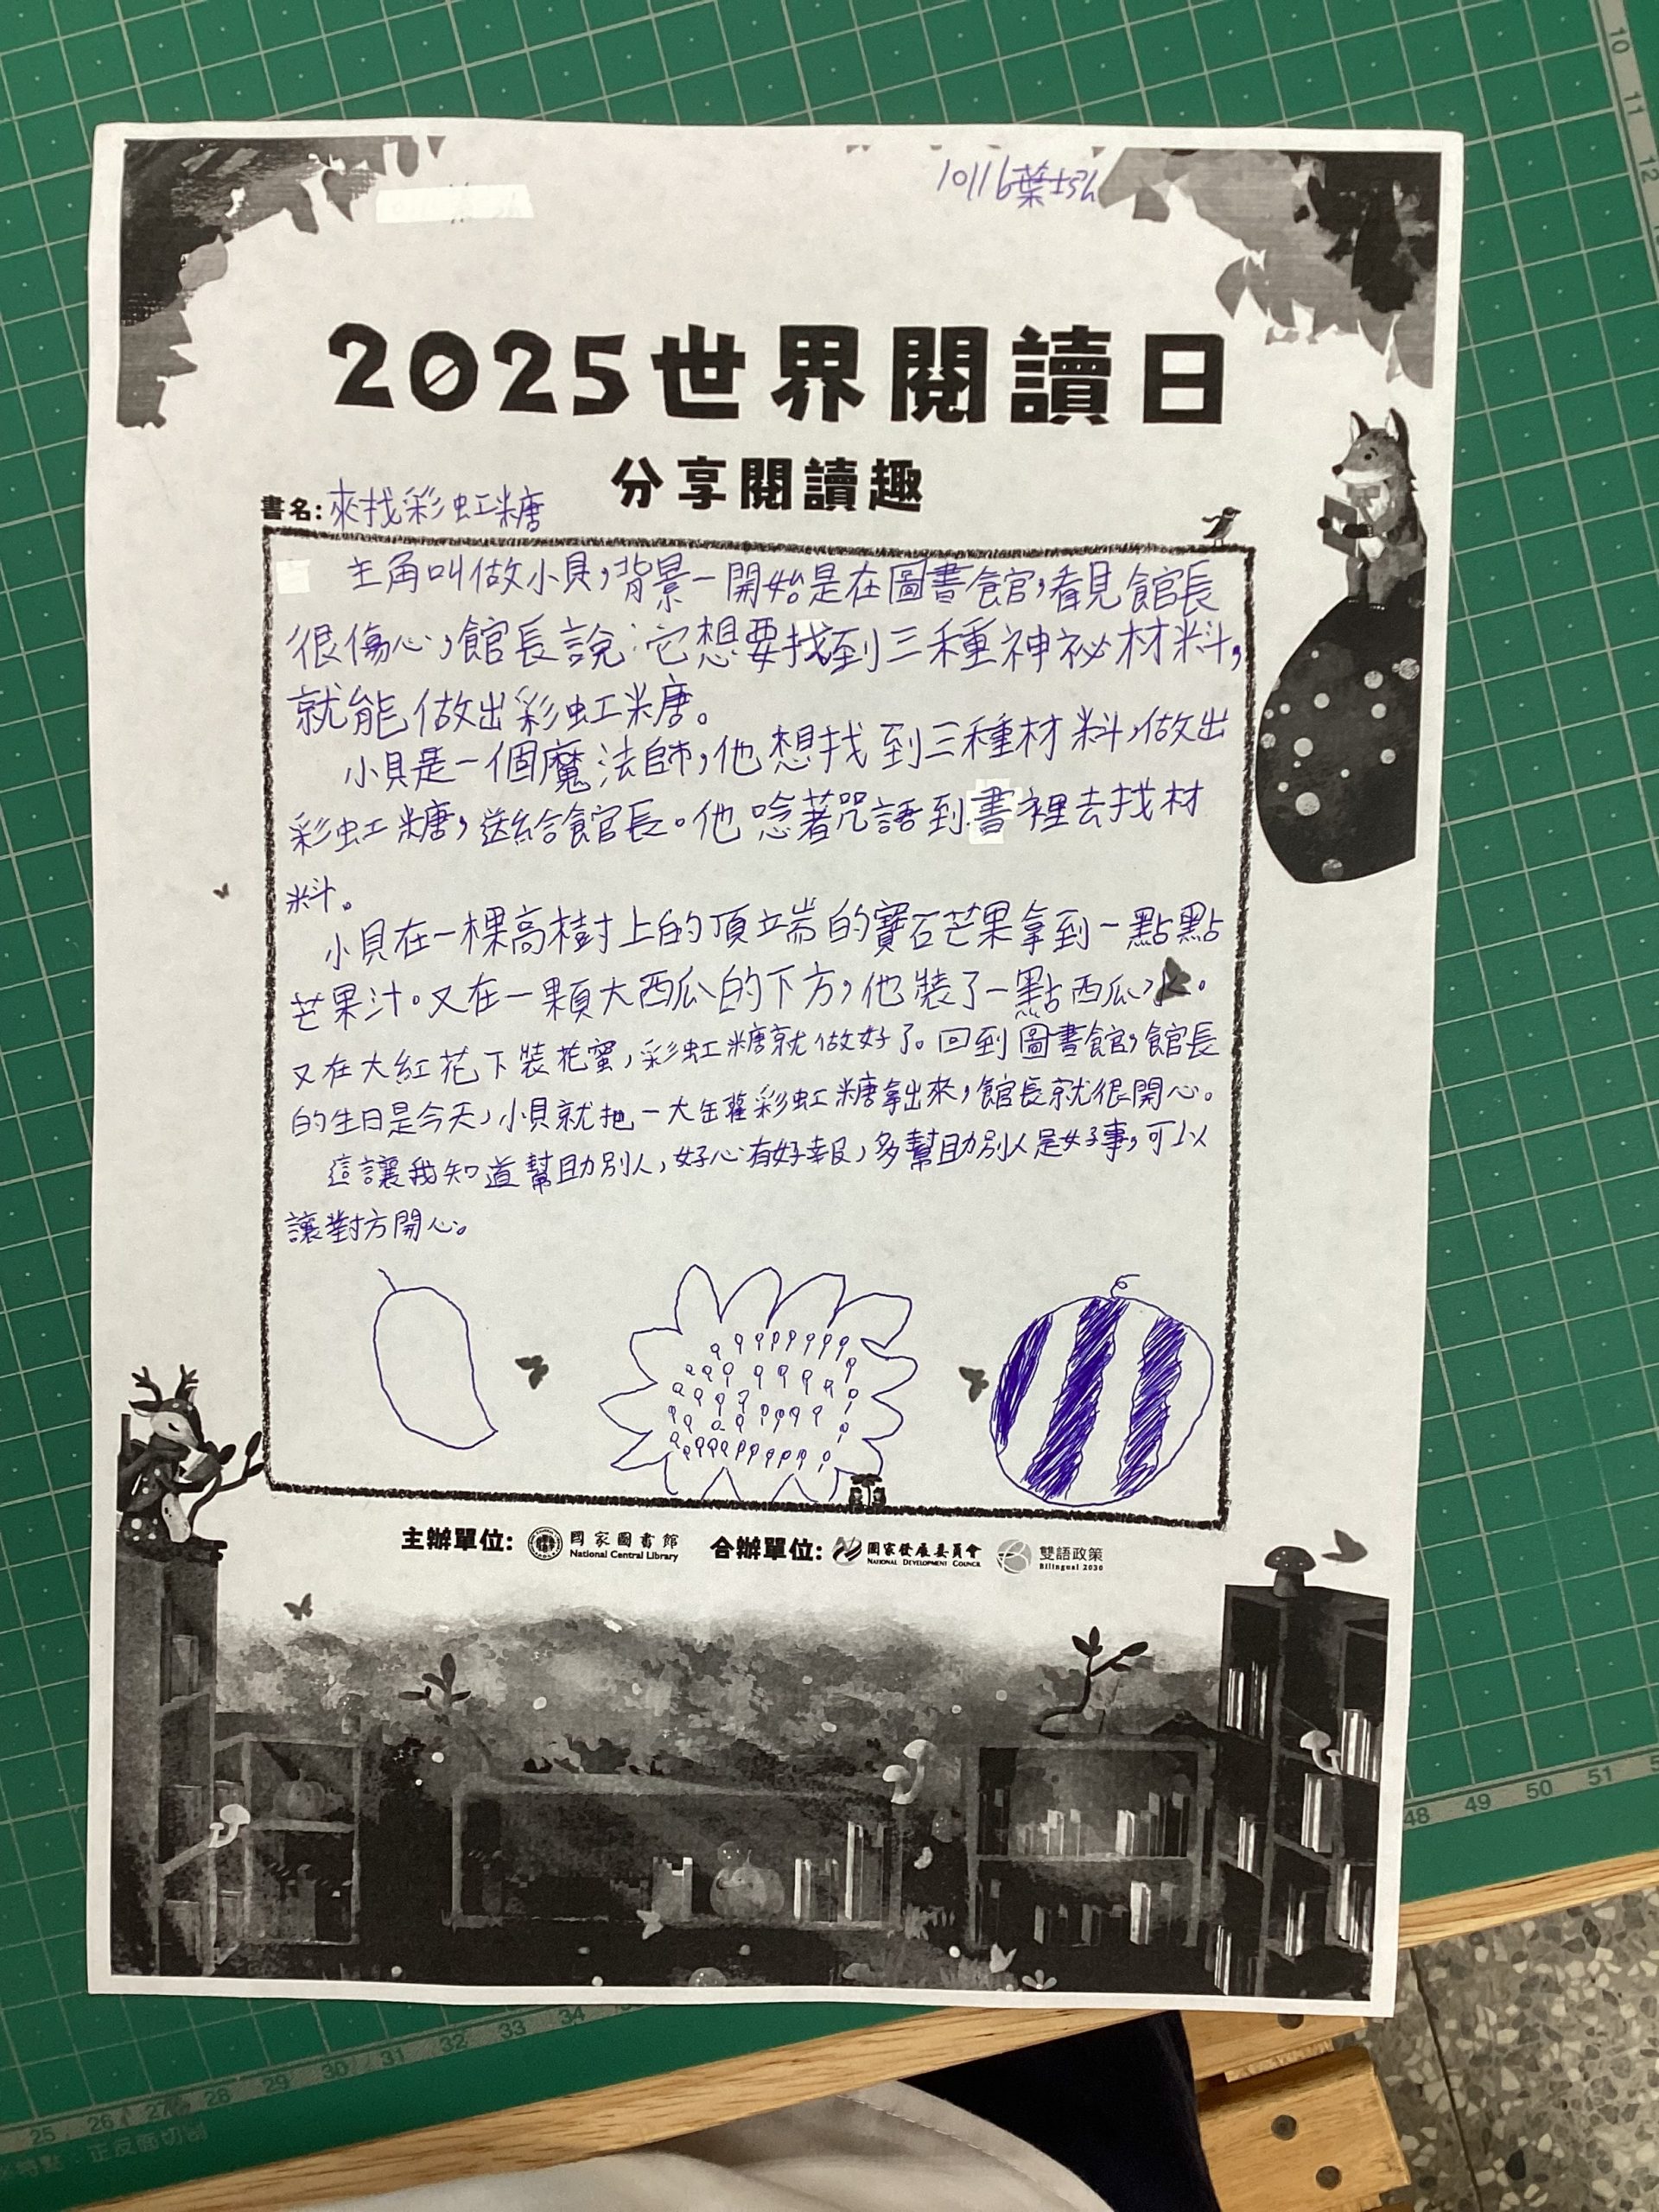 10116葉士弘
2025世界閱讀日
分享閱讀趣
書名:來找彩虹糖
主角叫做小貝,背景一開始是在圖書館,看見館長
很傷心,館長說:它想要找到三種神祕材料,
就能做出彩虹糖。
小貝是一個魔法師,他想找到三種材料,做出
彩虹糖,送給館長。他唸著咒語到書裡去找材
料。
小貝在一棵高樹上的頂端的寶石芒果拿到一點點
芒果汁。又在一顆大西瓜的下方,他裝了一點西瓜水。
又在大紅花下裝花蜜,彩虹糖就做好了。回到圖書館,館長
的生日是今天,小貝就把一大罐彩虹糖拿出來,館長就很開心。
這讓我知道幫助別人,好心有好報,多幫助別人是好事,可以
讓對方開心。
主辦單位: 國家圖書館 合辦單位: 國家發展委員會 雙語政策
National Central Library NATIONAL DEVELOPMENT COUNCIL Bilingual 2030
10
11
12
48 49 50 51
25 26 27 28 29 30 31 32 33 34
特點:正反面切割